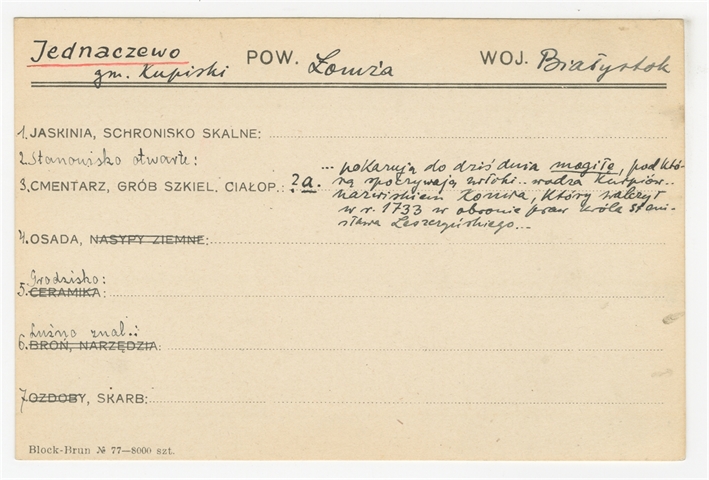 Jednaczewo POW. Łomża WOJ. Białystok
gm. Kupiski
1. JASKINIA, SCHRONISKO SKALNE:
2. Stanowisko otwarte:
... pokazują do dziś dnia mogiłę, pod któ-
3. CMENTARZ, GRÓB SZKIEL. CIAŁOP.: ?a. rą spoczywają zwłoki.. wodza Kurpiów..
nazwiskiem Konwa, który walczył
w r. 1733 w obronie praw króla Stani-
sława Leszczyńskiego...
4. OSADA, NASYPY ZIEMNE:
Grodzisko:
5. CERAMIKA:
Luźno znal.:
6. BROŃ, NARZĘDZIA:
7. OZDOBY, SKARB:
Block-Brun № 77—8000 szt.